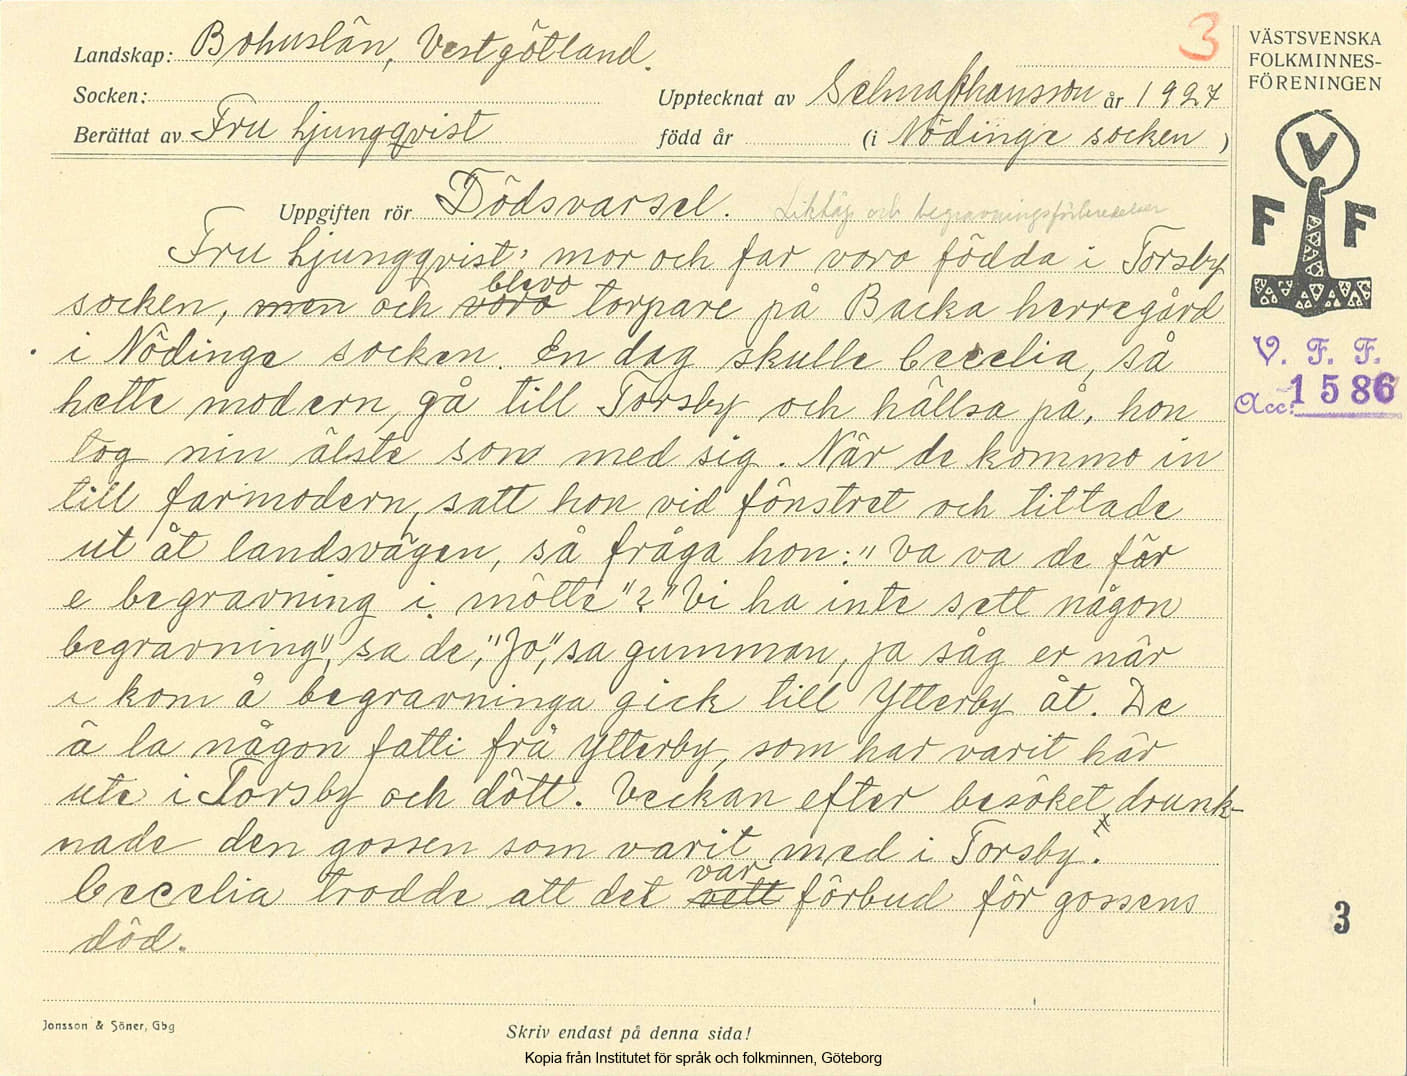 3
Landskap: Bohuslän, Vestgötland.
Socken:
Upptecknat av Selma Johansson år 1927
Berättat av Fru Ljungqvist
född år (i Nödinge socken)
Uppgiften rör Dödsvarsel. Liktåg och begravningsförberedelser
Fru Ljungqvist's mor och far voro födda i Torsby
socken, men och voro blevo torpare på Backa herregård
i Nödinge socken. En dag skulle Cecelia, så
hette modern, gå till Torsby och hällsa på, hon
tog nin älste son med sig. När de kommo in
till farmodern, satt hon vid fönstret och tittade
ut åt landsvägen, så fråga hon: "Va va de får
e begravning i mötte"? "Vi ha inte sett någon
begravning", sa de, "Jo", sa gumman, ja såg er när
i kom å begravninga gick till Ytterby åt. De
ä la någon fatti frå Ytterby, som har varit här
ute i Torsby och dött. Veckan efter besöket drunk-
nade den gossen som varit med i Torsby.
Cecelia trodde att det sett var förbud för gossens
död.
Jonsson & Söner, Gbg
Skriv endast på denna sida!
Kopia från Institutet för språk och folkminnen, Göteborg
VÄSTSVENSKA
FOLKMINNES-
FÖRENINGEN
V
F F
V. F. F.
Acc: 1586
3